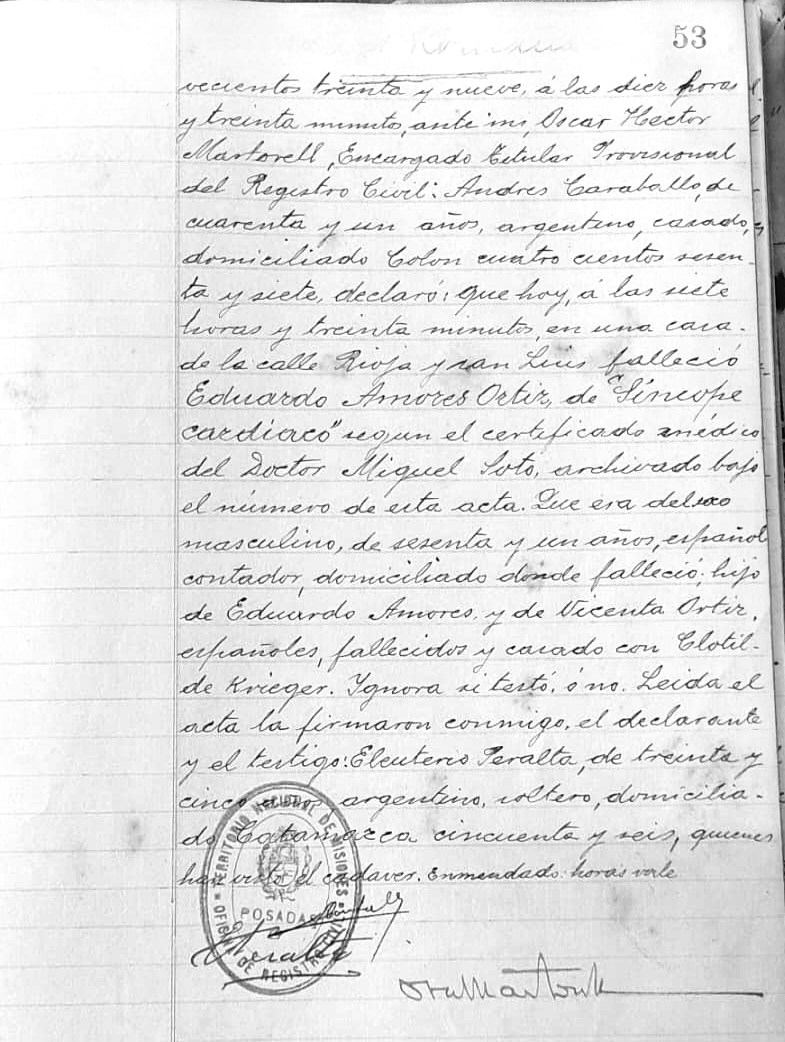 53
vecientos treinta y nueve, á las diez horas
y treinta minutos, ante mi, Oscar Hector
Martorell, Encargado Titular Provisional
del Registro Civil: Andres Caraballo, de
cuarenta y un años, argentino, casado,
domiciliado Colon cuatro cientos sesen-
ta y siete, declaró: Que hoy, á las siete
horas y treinta minutos, en una casa.
de la calle Rioja y san Luis falleció
Eduardo Amores Ortiz, de "Síncope
cardiaco" segun el certificado médico
del Doctor Miguel Soto, archivado bajo
el número de esta acta. Que era del sexo
masculino, de sesenta y un años, español
contador, domiciliado donde falleció; hijo
de Eduardo Amores, y de Vicenta Ortiz,
españoles, fallecidos y casado con Clotil-
de Krieger. Ygnora si testó, ó no. Leida el
acta la firmaron conmigo, el declarante
y el testigo: Eleuterio Peralta, de treinta y
cinco años argentino, soltero, domicilia-
do Catamarca cincuenta y seis, quienes
han visto el cadaver. Enmendado: horas vale
TERRITORIO NACIONAL DE MISIONES
POSADAS
OFICINA DE REGISTRO CIVIL
Peralta